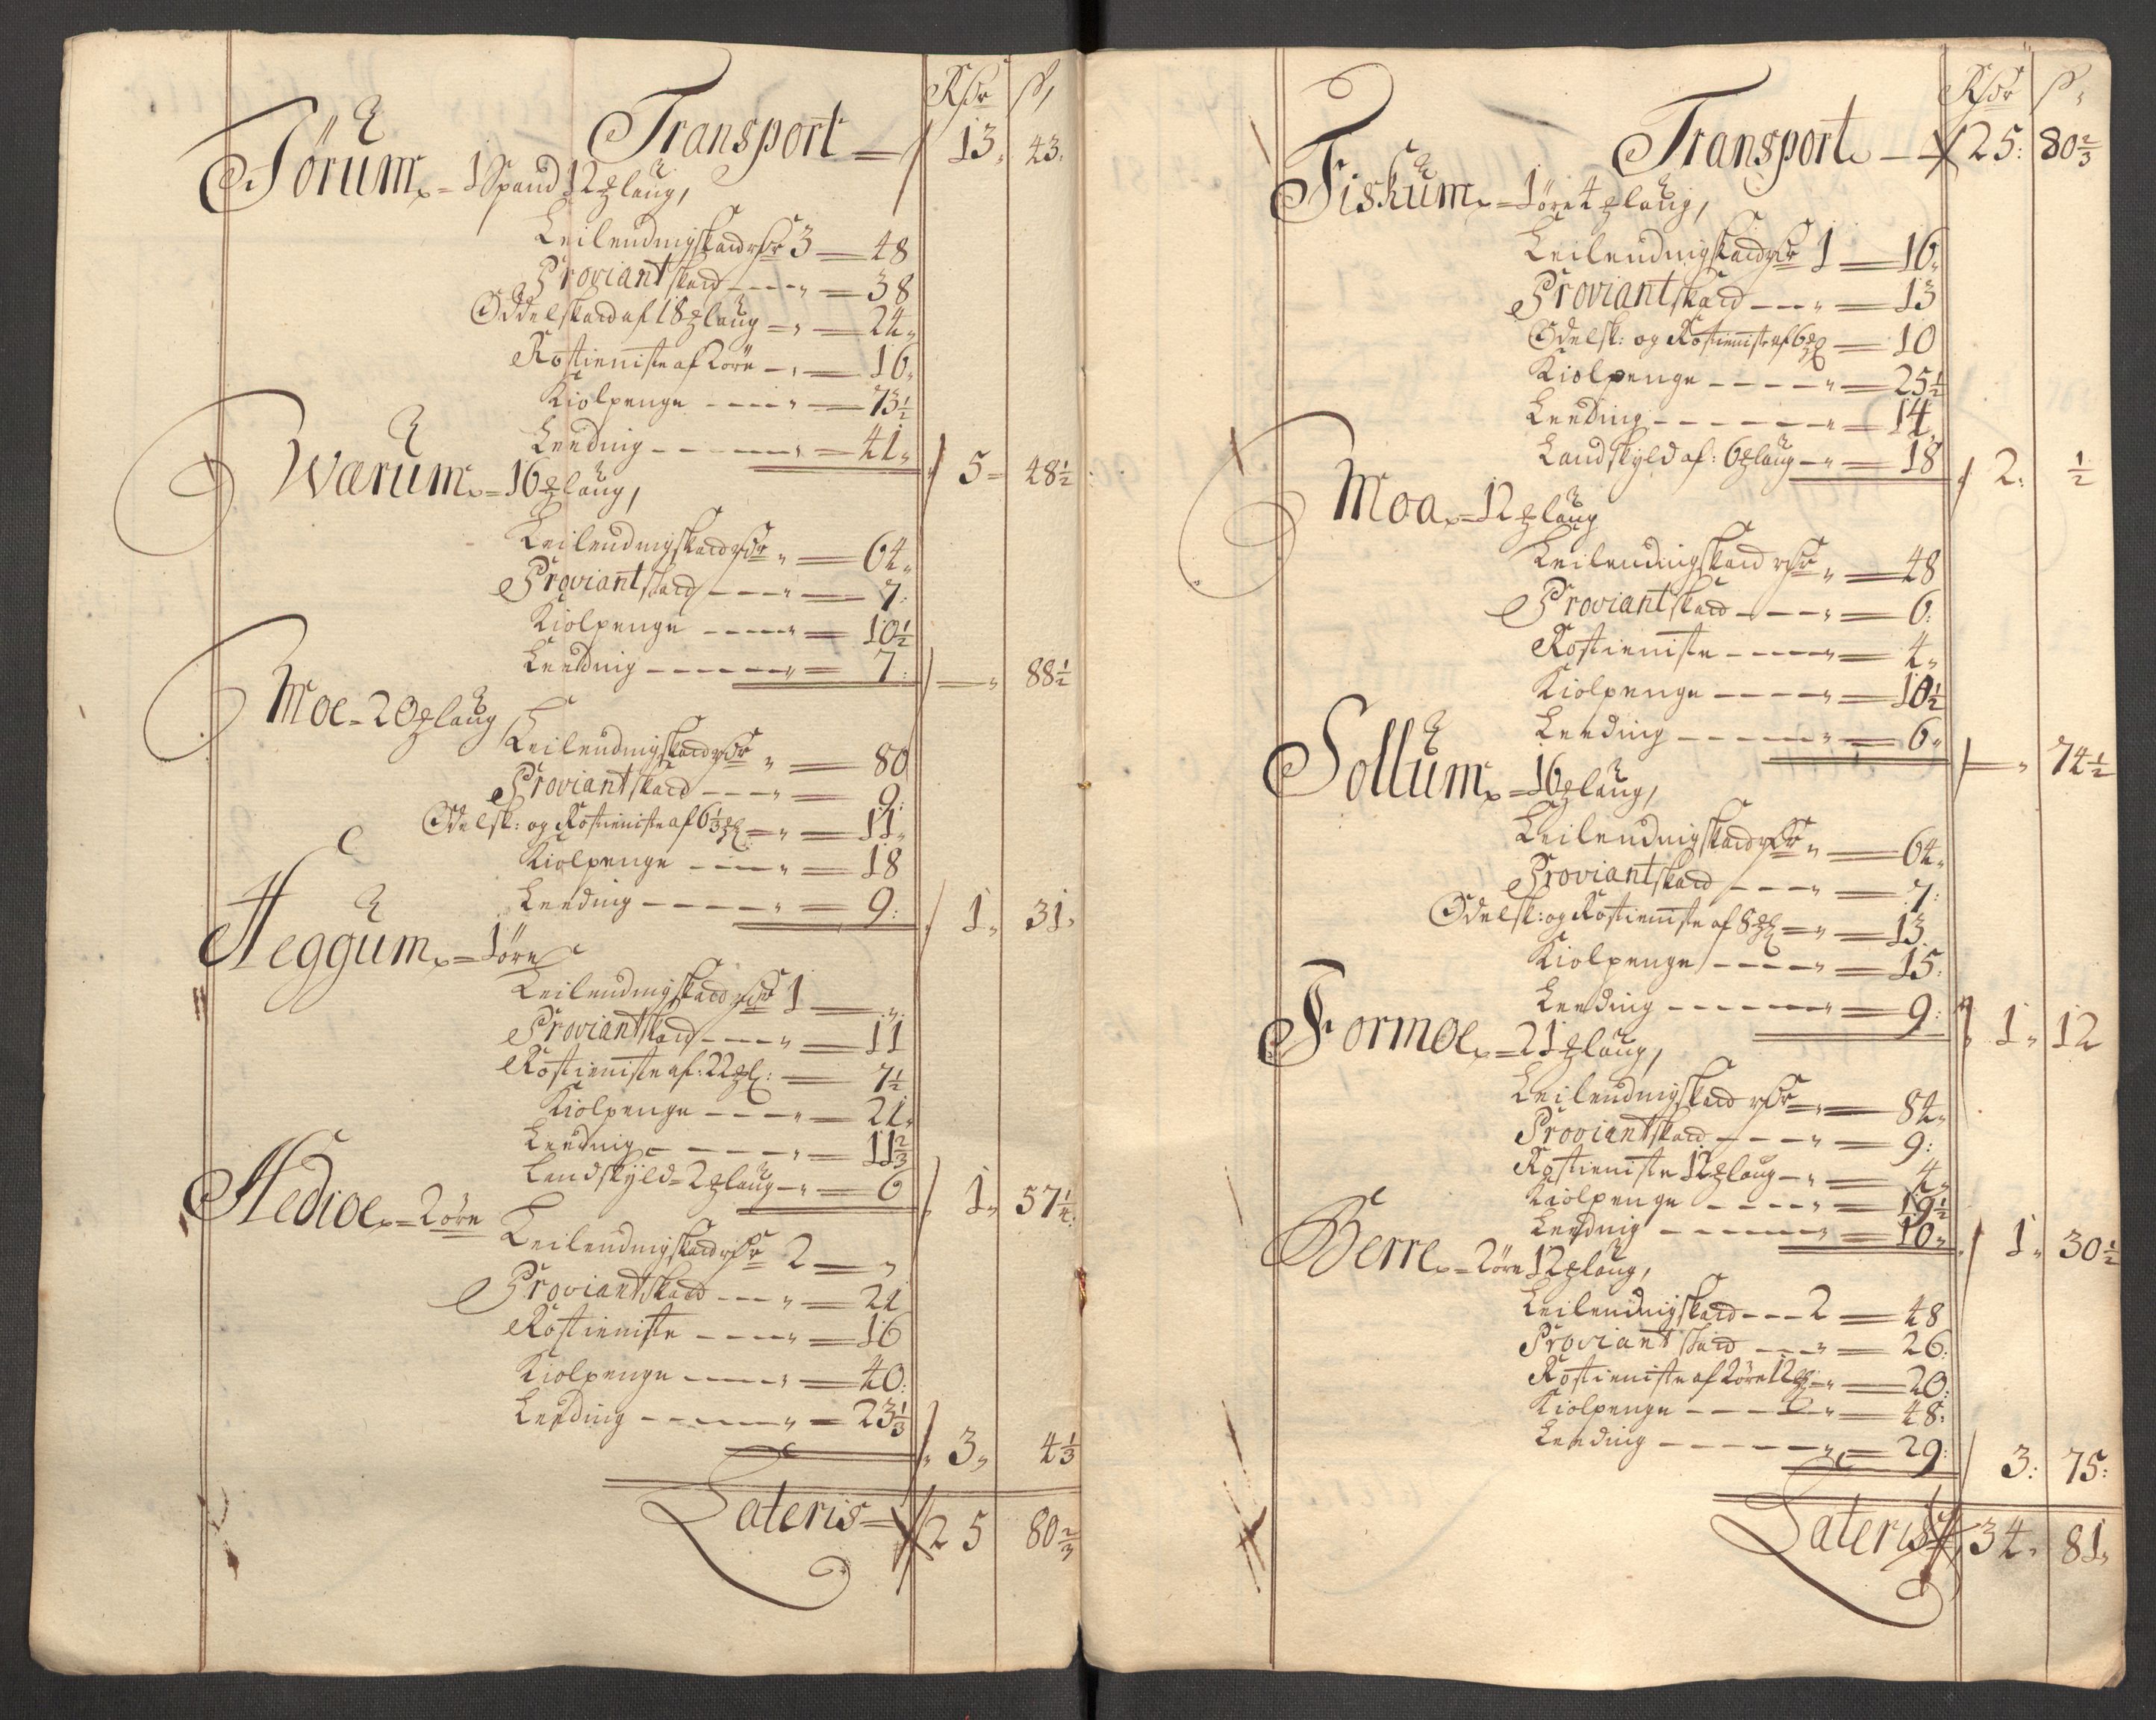 Rdr ß,
Transport — 13, 43:
Törum = 1 Spand 12 ℔ laug,
Leilendingskatt rdr 3 — 48
Proviantskatt ---- " = 38
Oddelskatt af 18 ℔ laug = " = 24"
Rostieniste af 2 öre - " = 16,
Kiolpenge ---- " = 73½
Leeding ---- " = 41"
5 = 48½
Wærum = 16 ℔ laug,
Leilendingskatt rdr " = 64"
Proviantskatt ---- " = 7:
Kiolpenge ---- " = 10½
Leeding ---- " = 7:
— " 88½
Moe = 20 ℔ laug
Leilendingskatt rdr " = 80
Proviantskatt ---- " = 9:
Odelsk: og Rostieniste af 6⅓ ℔ = " = 11"
Kiolpenge ---- " = 18
Leeding ---- " = 9:
1" 31"
Heggum = 1 öre
Leilendingskatt rdr 1 — "
Proviantskatt ---- " = 11
Rostieniste af: 22 ℔: — 7½
Kiolpenge ---- " = 21"
Leeding ---- " = 11⅔
Landskyld = 2 ℔ laug - " = 6
1" 57¼:
Hedioe = 2 öre
Leilendingskatt rdr 2 — "
Proviantskatt --- " = 21
Rostieniste ---- " = 16
Kiolpenge ---- " = 40:
Leeding ---- " = 23⅓
3" 4⅓
Lateris = 25 80⅔
Rdr ß,
Transport — 25: 80⅔
Fiskum = 1 öre 4 ℔ laug,
Leilendingskatt rdr 1 — 16"
Proviantskatt --- " = 13
Odelsk: og Rostieniste af 6 ℔ — 10
Kiolpenge ---- " = 25½
Leeding ---- " = 14
Landskyld af: 6 ℔ laug - " = 18
2: ½
Moa = 12 ℔ laug
Leilendingskatt rdr " = 48
Proviantskatt ---- " = 6:
Rostieniste ---- " = 4"
Kiolpenge ---- " = 10½
Leeding ---- " = 6"
— " 74½
Sollum = 16 ℔ laug,
Leilendingskatt rdr " = 64"
Proviantskatt ---- " = 7:
Odelsk: og Rostieniste af 8 ℔ = " = 13
Kiolpenge ---- " = 15:
Leeding ---- " = 9:
1" 12
Formoe = 21 ℔ laug,
Leilendingskatt rdr = " = 84"
Proviantskatt ---- " = 9:
Rostieniste 12 ℔ laug - " = 4"
Kiolpenge ---- " = 19½
Leeding ---- " = 10"
1" 30½
Berre = 2 öre 12 ℔ laug,
Leilendingskatt --- 2 = 48
Proviantskatt --- " = 26:
Rostieniste af 2 öre 12 ℔ = " = 20:
Kiolpenge ---- " = 48:
Leeding ---- " = 29:
3: 75:
Lateris 34" 81"